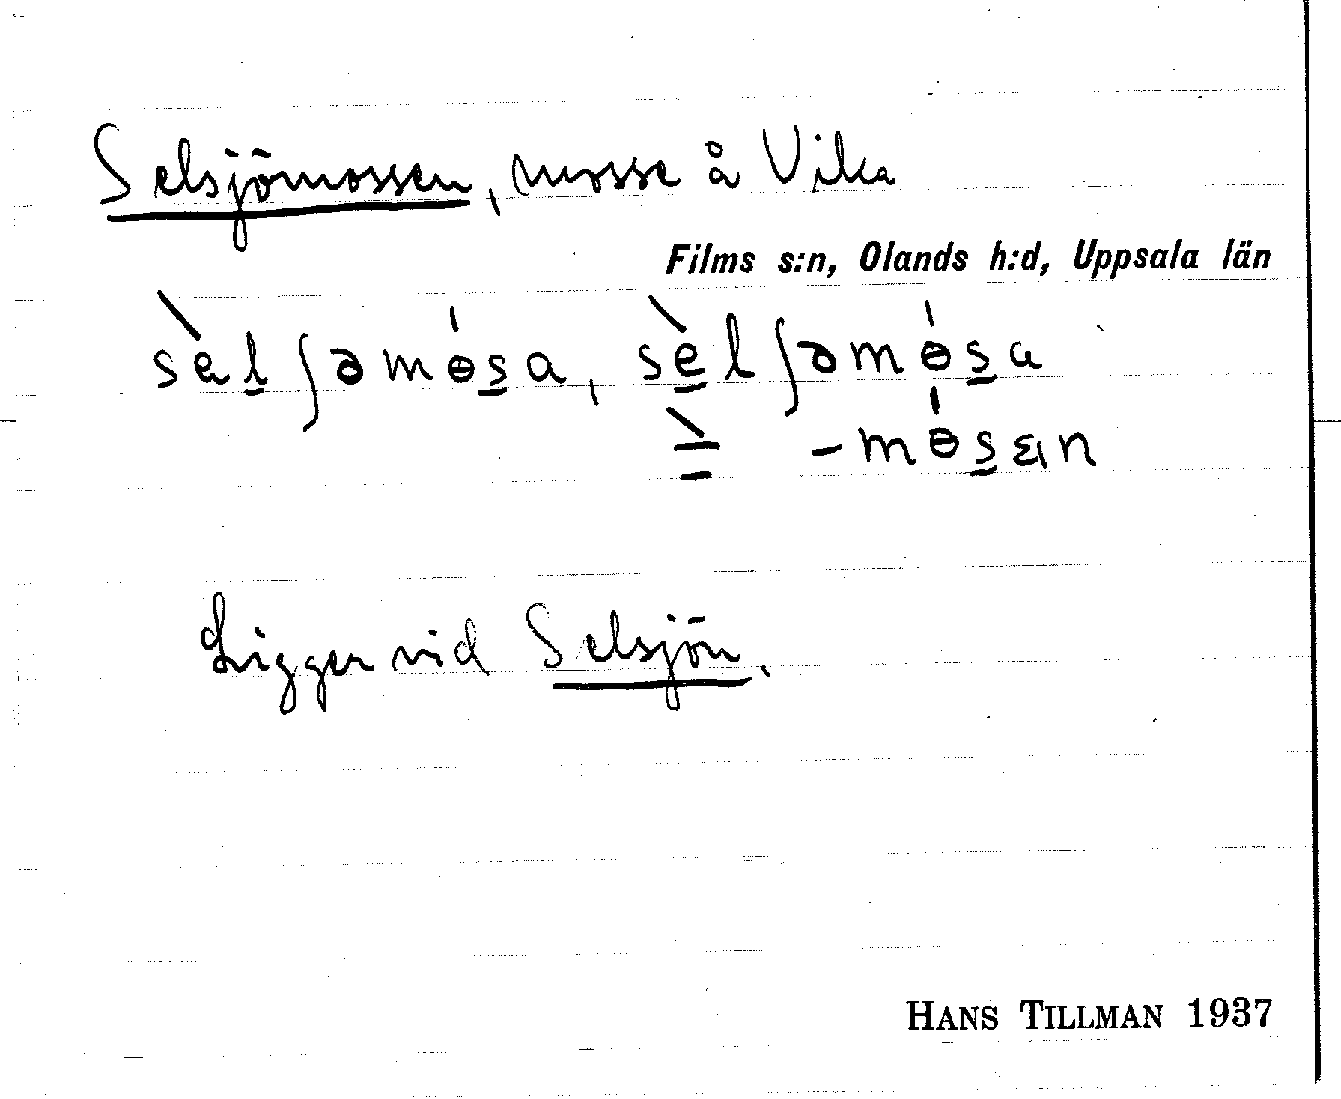 Selsjömossen, mosse å Vika
Films s:n, Olands h:d, Uppsala län
sèl̲ʃəmɵ́s̲a, sè̲lʃəmɵ́s̲a
-mɵ́s̲ɛın
Ligger vid Selsjön.
HANS TILLMAN 1937